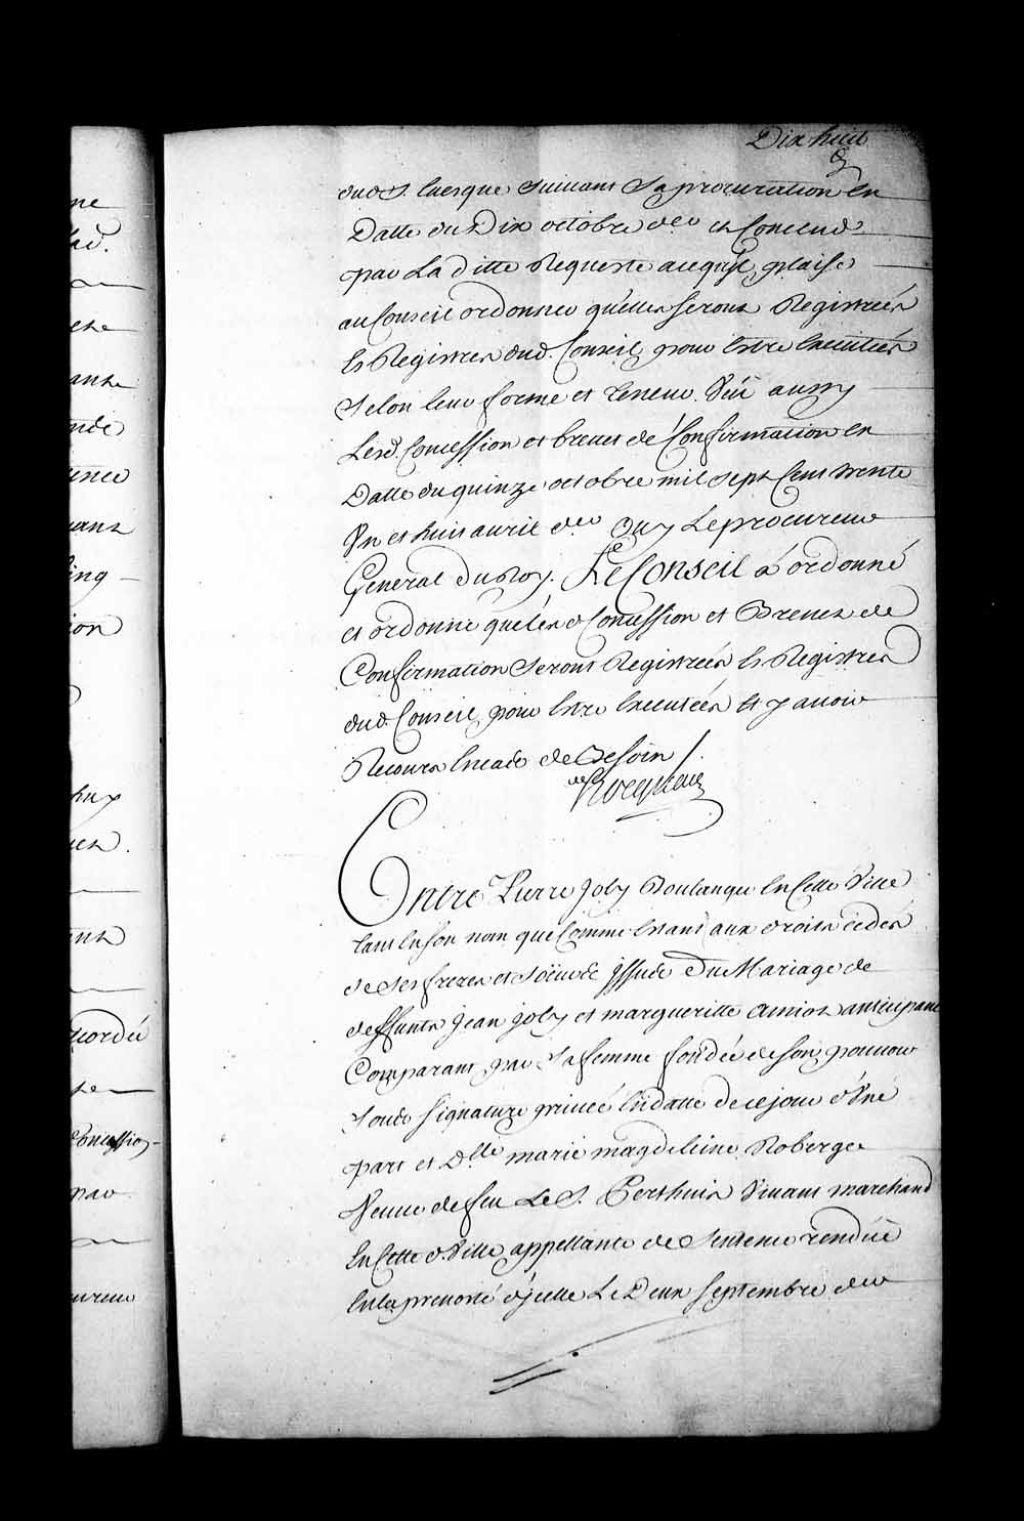 Dix huit
dud. S. Evesque suivant sa procuration en
Datte du Dix octobre der et Conclud
par La ditte Requeste acequ'il plaise
au Conseil ordonner qu'elles seront Registrées
Es Registres dud. Conseil pour Estre Executées
selon leur forme et teneur. Veü aussy
Lesd. Concession et brevet de Confirmation en
Datte du quinze octobre mil sept Cent trente
Un et huit avril der Ouy Le procureur
General du Roy. Le Conseil a ordonné
et ordonne que lesd Concession et Brevet de
Confirmation seront Registrées Es Registres
dud. Conseil pour Estre Executées Et y avoir
Recours Encas de Besoin /.
hocquart
Entre Pierre Joly Boulanger En Cette Ville
tant En son nom que Comme Estant aux droits cedés
de ses freres et soeur issus Du Mariage de
deffunts Jean Joly et margueritte Amiot anticipant
Comparant par sa femme fondée de son pouvoir
sous signature privée En datte de ce jour d'Une
part et Dlle marie magdeleine Roberge
Veuve de feu Le S. Perthuis Vivant marchand
En Cette d. Ville appellante de sentence rendüe
En la prevosté d'jcelle Le Deux septembre der